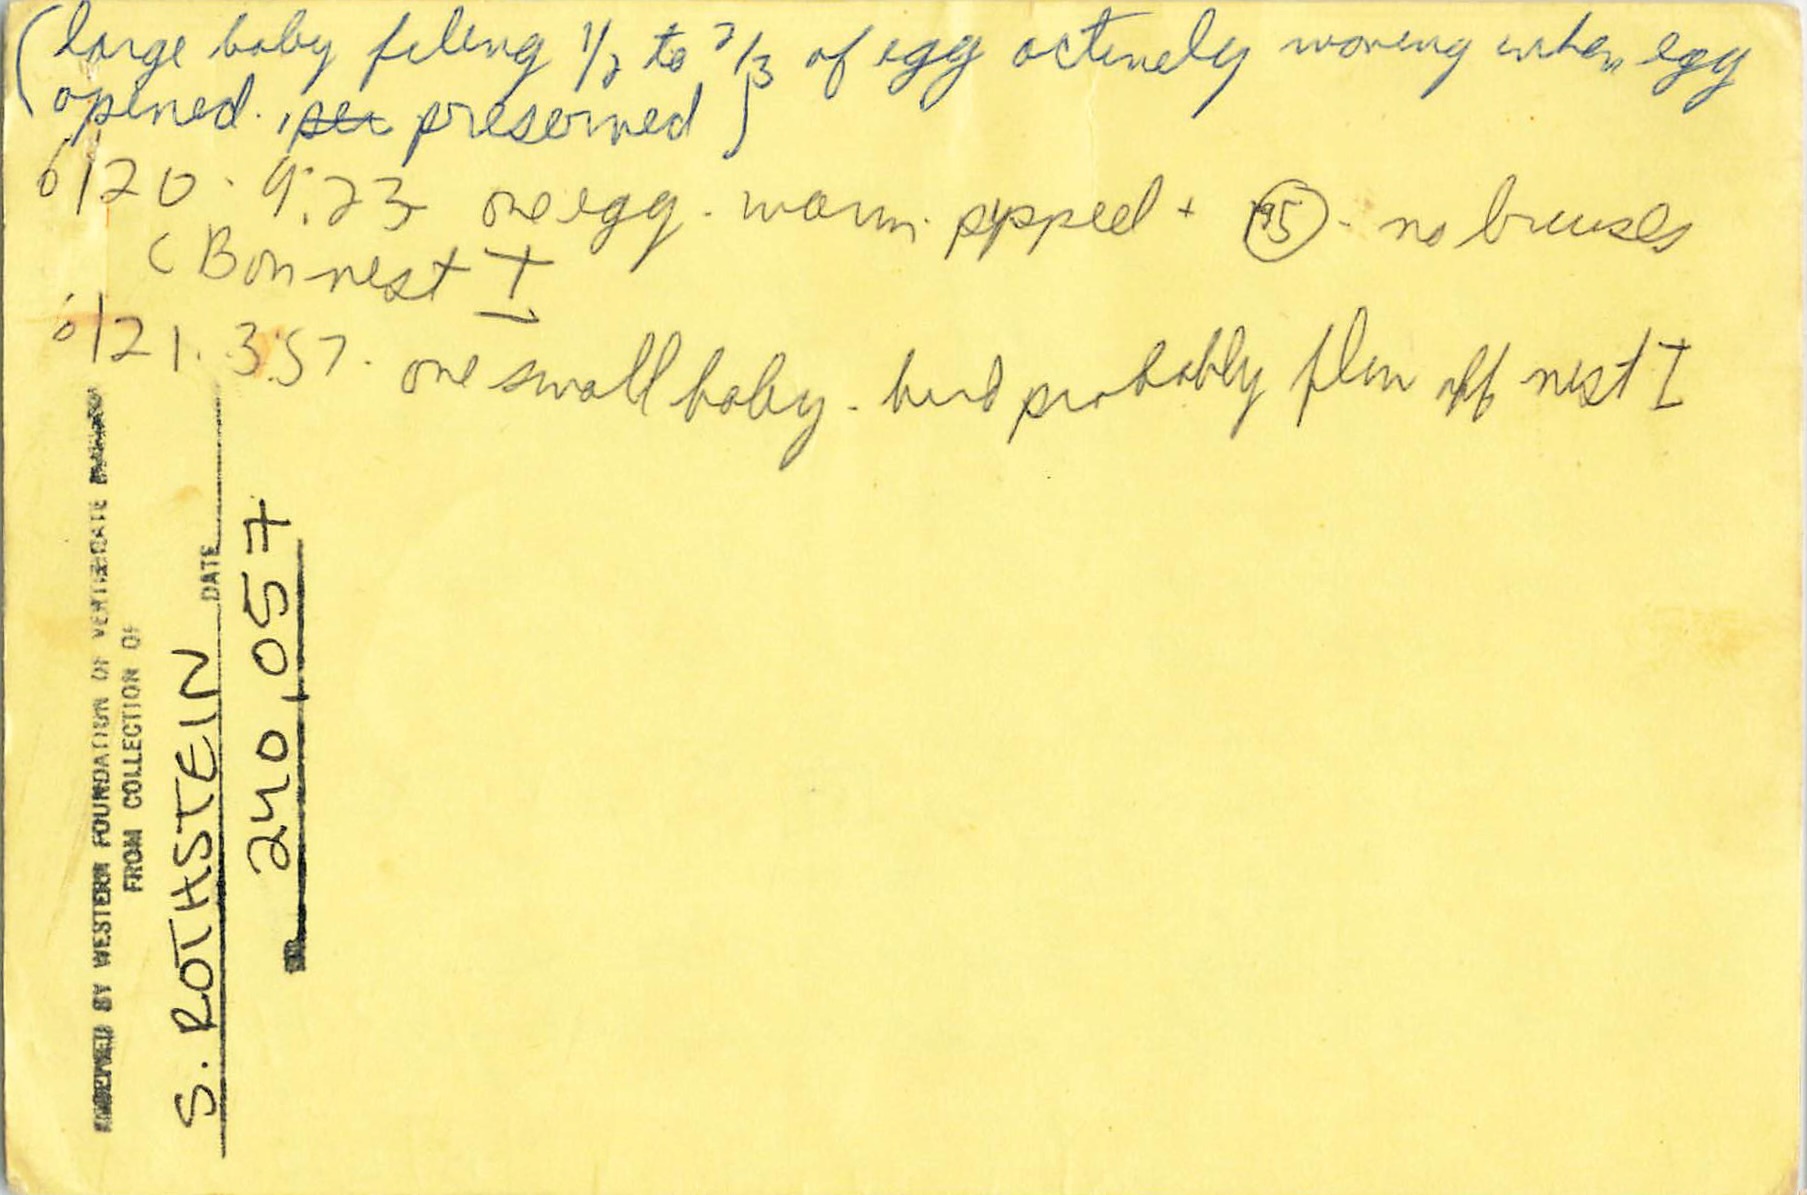 (large baby filing 1/2 to 2/3 of egg actively moving when egg
opened. preserved)
6/20. 9:23 one egg. warm. pipped + - no bruises
(B on nest I
6/21. 3:57. one small baby. bird probably flew off nest I
BY WESTERN FOUNDATION OF VERTEBRATE
FROM COLLECTION OF
S. ROTHSTEIN DATE
240,057